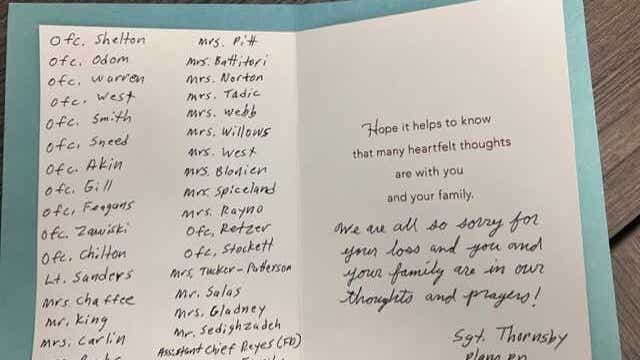 Ofc. Shelton
Ofc. Odom
Ofc. Warren
Ofc. West
Ofc. Smith
Ofc. Sneed
Ofc. Akin
Ofc. Gill
Ofc. Feagans
Ofc. Zawiski
Ofc. Chilton
Lt. Sanders
Mrs. Chaffee
Mr. King
Mrs. Carlin
Mrs. Pitt
Mrs. Battitori
Mrs. Norton
Mrs. Tadic
Mrs. Webb
Mrs. Willows
Mrs. West
Mrs. Blonien
Mrs. Spiceland
Mrs. Rayno
Ofc. Retzer
Ofc. Stockett
Mrs. Tucker-Patterson
Mr. Salas
Mrs. Gladney
Mr. Sedighzadeh
Assistant Chief Reyes (FD)
Hope it helps to know
that many heartfelt thoughts
are with you
and your family.
We are all so sorry for
your loss and you and
your family are in our
thoughts and prayers!
Sgt. Thornsby
Plano PD